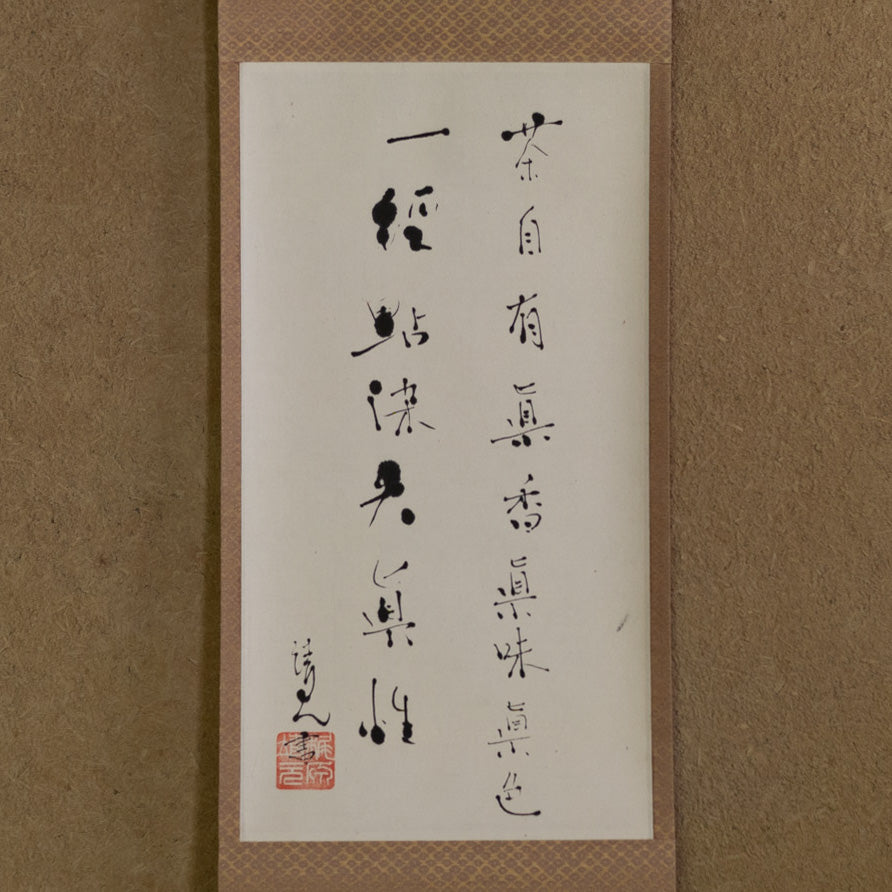 茶自有眞香眞味眞色
一經點染失眞性
書